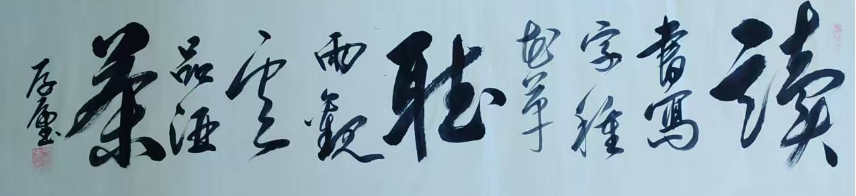 讀
書寫
字種
花草
聽
雨觀
云
品酒
茶